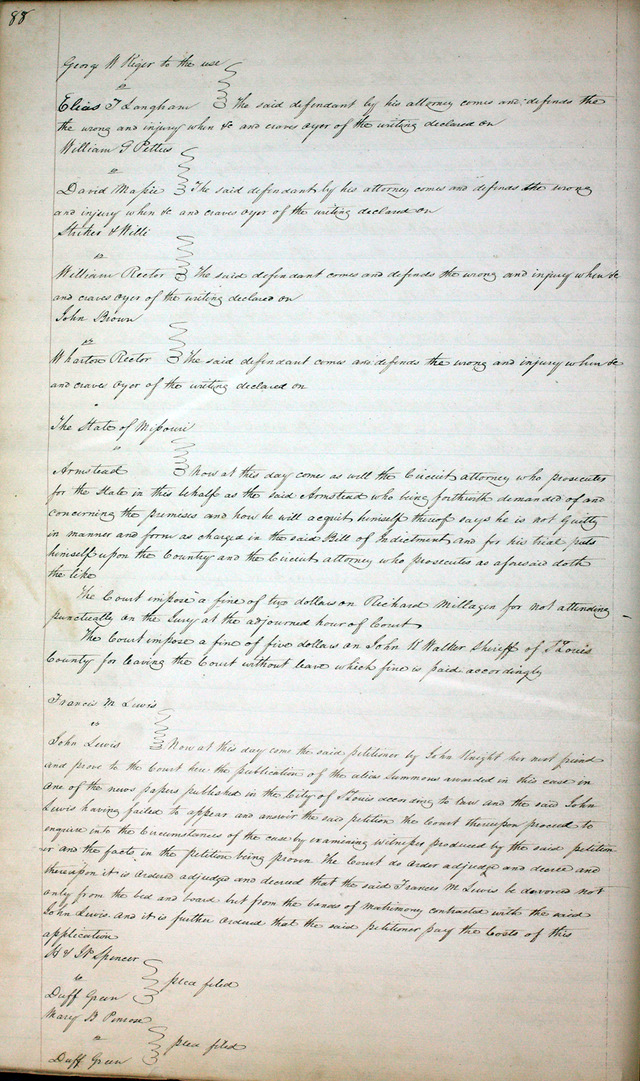 88
George W Kiger to the use
vs
Elias T Langham The said defendant by his attorney comes and defends the
the wrong and injury when &c and craves oyer of the writing declared on
William G Pettus
vs
David Massie The said defendant by his attorney comes and defends the wrong
and injury when &c and craves oyer of the writing declared on
Striker & Willi
vs
William Rector The said defendant comes and defends the wrong and injury when &c
and craves oyer of the writing declared on
John Brown
vs
Wharton Rector The said defendant comes and defends the wrong and injury when &c
and craves oyer of the writing declared on
The State of Missouri
vs
Armstead Now at this day comes as will the Circuit attorney who prosecutes
for the State in this behalf as the said Armstead who being forthwith demanded of and
concerning the premises and how he will acquit himself thereof says he is not Guilty
in manner and form as charged in the said Bill of Indictment and for his trial puts
himself upon the Country and the Circuit attorney who prosecutes as aforesaid doth
the like
The Court impose a fine of two dollars on Richard Millagin for not attending
punctually on the Jury at the adjourned hour of Court
The Court impose a fine of five dollars on John K Walker Sheriff of St Louis
County for leaving the Court without leave which fine is paid accordingly
Frances M Lewis
vs
John Lewis Now at this day come the said petitioner by John Knight her next friend
and prove to the Court here the publication of the alias Summons awarded in this case in
one of the news papers published in the City of St Louis according to law and the said John
Lewis having failed to appear and answer the said petition the Court thereupon proceed to
enquire into the Circumstances of the case by examining witnesses produced by the said petition
er and the facts in the petition being proven The Court do order adjudge and decree and
thereupon it is ordered adjudged and decreed that the said Frances M Lewis be divorced not
only from the bed and board but from the bands of matrimony contracted with the said
John Lewis. And it is further ordered that the said petitioner pay the Costs of this
application
H & JP Spencer
vs
Duff Green plea filed
Mary B Penrose
vs
Duff Green plea filed